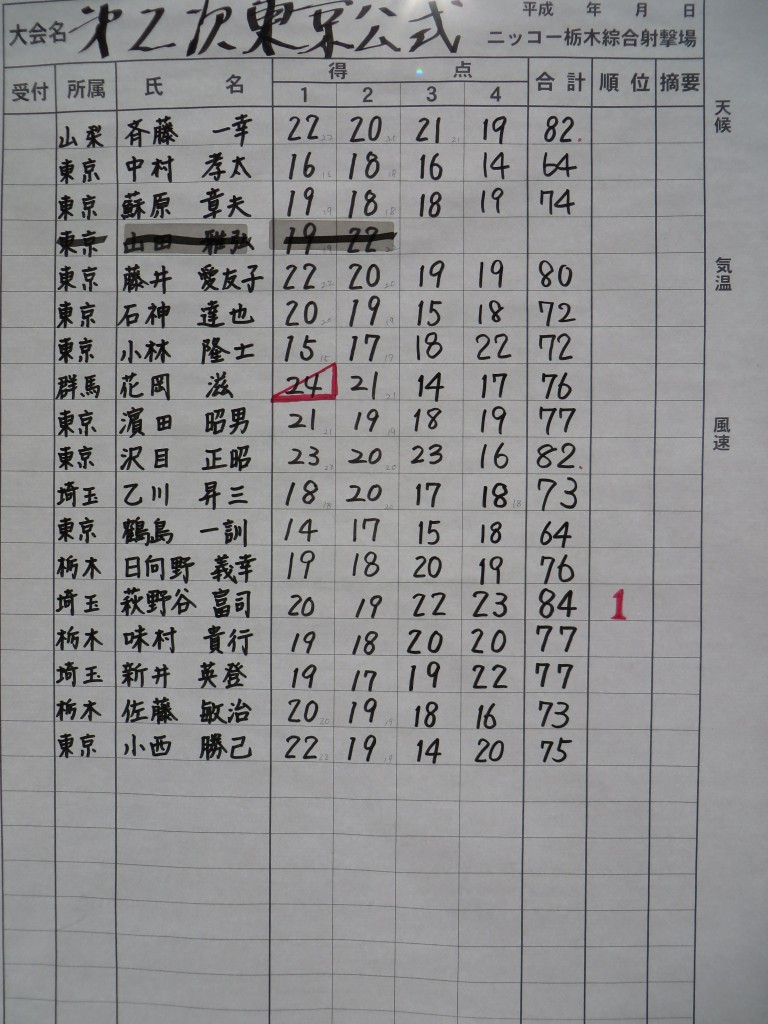 平成 年 月 日
大会名 第2次東京公式 ニッコー栃木綜合射撃場
受付 所属 氏 名 得 点 合計 順位 摘要
1 2 3 4
天候
山梨 斉藤 一幸 22 20 21 19 82.
東京 中村 孝太 16 18 16 14 64
東京 蘇原 章夫 19 18 18 19 74
東京 山田 雅弘 19 22
気温
東京 藤井 愛友子 22 20 19 19 80
東京 石神 達也 20 19 15 18 72
東京 小林 隆士 15 17 18 22 72
群馬 花岡 滋 24 21 14 17 76
東京 濱田 昭男 21 19 18 19 77
風速
東京 沢目 正昭 23 20 23 16 82.
埼玉 乙川 昇三 18 20 17 18 73
東京 鶴島 一訓 14 17 15 18 64
栃木 日向野 義幸 19 18 20 19 76
埼玉 萩野谷 富司 20 19 22 23 84 1
栃木 味村 貴行 19 18 20 20 77
埼玉 新井 英登 19 17 19 22 77
栃木 佐藤 敏治 20 19 18 16 73
東京 小西 勝己 22 19 14 20 75